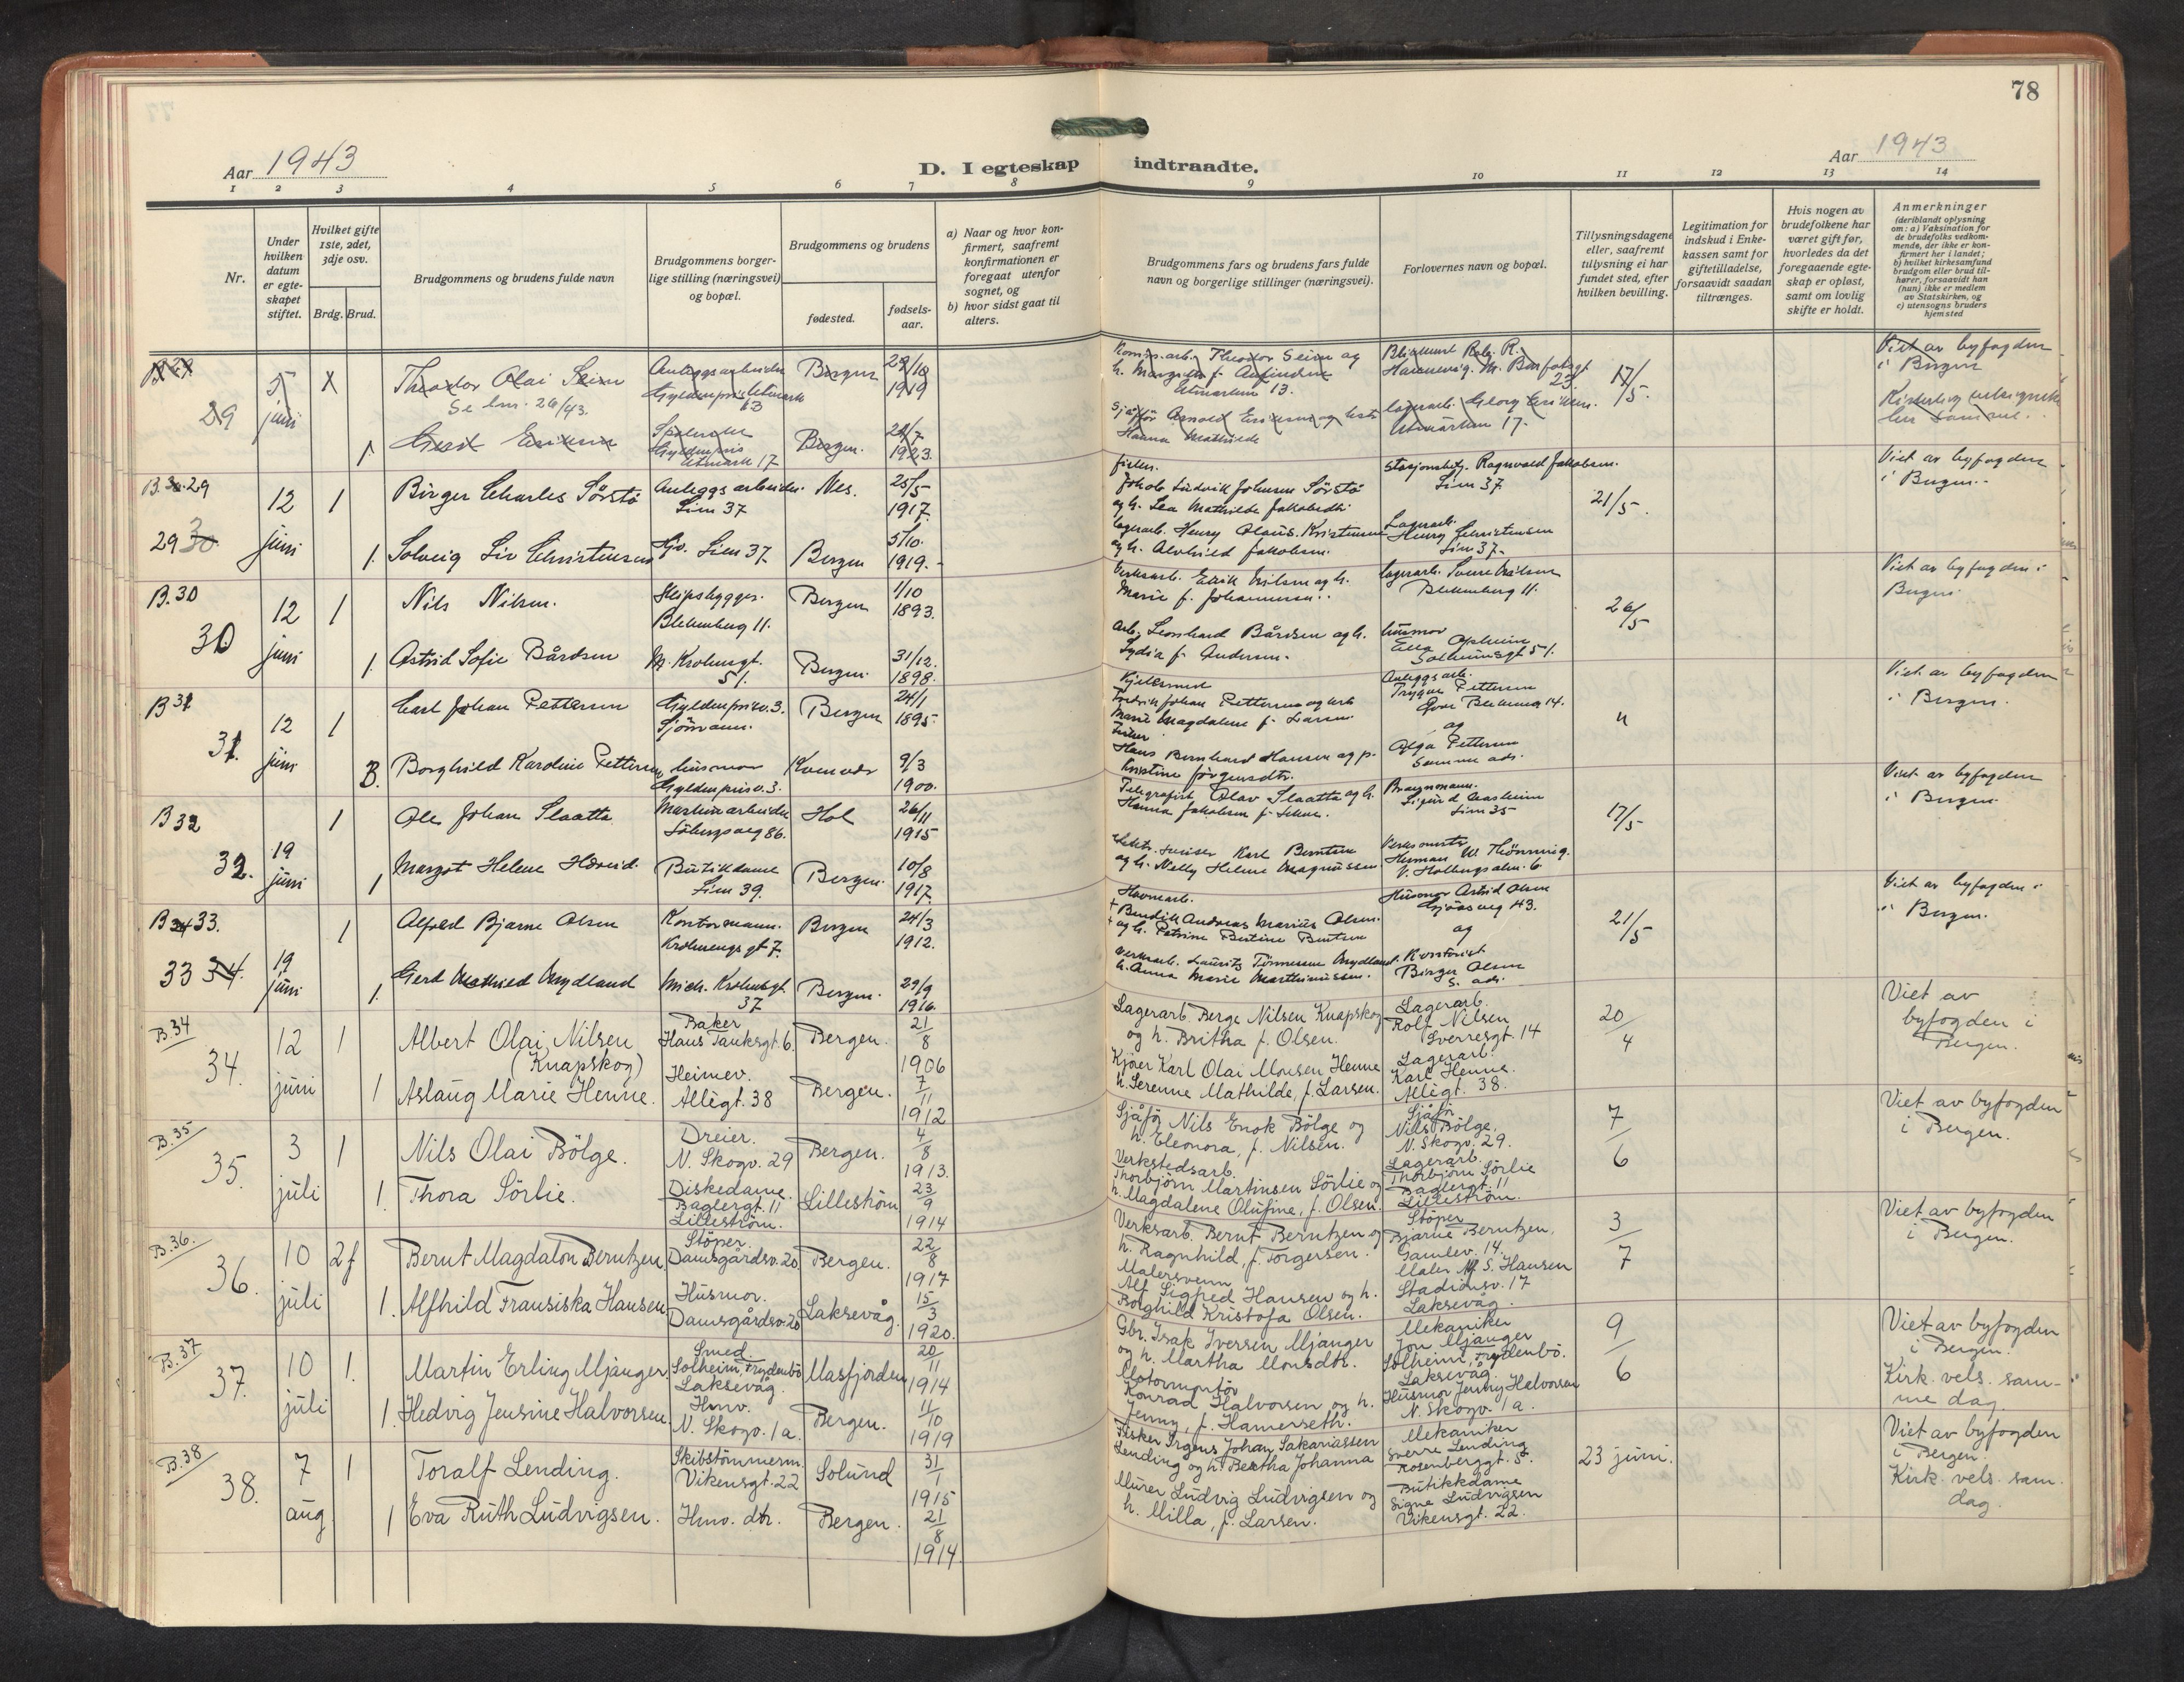 78
Aar 1943
D. I egteskap indtraadte.
Aar 1943
1 2 3 4 5 6 7 8 9 10 11 12 13 14
Nr.
Under hvilken datum er egteskapet stiftet.
Hvilket gifte 1ste, 2det, 3dje osv.
Brdg. Brud.
Brudgommens og brudens fulde navn
Brudgommens borgerlige stilling (næringsvei) og bopæl.
Brudgommens og brudens
fødested.
fødsels-aar.
a) Naar og hvor konfirmert, saafremt konfirmationen er foregaat utenfor sognet, og
b) hvor sidst gaat til alters.
Brudgommens fars og brudens fars fulde navn og borgerlige stillinger (næringsvei).
Forlovernes navn og bopæl.
Tillysningsdagene eller, saafremt tillysning ei har fundet sted, efter hvilken bevilling.
Legitimation for indskud i Enkekassen samt for giftetilladelse, forsaavidt saadan tiltrænges.
Hvis nogen av brudefolkene har været gift før, hvorledes da det foregaaende egteskap er opløst, samt om lovlig skifte er holdt.
Anmerkninger
(deriblandt oplysning om: a) Vaksination for de brudefolks vedkommende, der ikke er konfirmert her i landet; b) hvilket kirkesamfund brudgom eller brud tilhører, forsaavidt han (hun) ikke er medlem av Statskirken, og c) utensogns bruders hjemsted
29 5 juni
Theodor Olai Seim
Se lnr. 26/43.
Anleggsarbeider
Bergen
29/10 1919
Theodor Seim og
Utmarken 13.
17/5
Viet av byfogden
i Bergen
1 Gerd Eriksen
Utmark 17
Bergen.
1923.
Arnold Eriksen og
Hanna Mathilde
lagerarb. Georg Eriksen.
Utmarken 17.
B. 29
29 12 juni 1
Birger Charles Sörstö
Anleggsarbeider.
Lien 37
Nes.
25/5 1917.
fisker.
Jakob Ludvik Johnsen Sörstö
og h. Lea Mathilde Jakobsdtr.
Stasjonsbetj. Ragnvald Jakobsen.
Lien 37
21/5.
Viet av byfogden
i Bergen.
1. Solveig Liv Christensen
Hjv. Lien 37.
Bergen
5/10. 1919.
lagerarb. Henry Olaus Kristensen
og h. Alvhild Jakobsen.
Lagerarb.
Henry Christensen
Lien 37.
B. 30
30 12 juni 1
Nils Nilsen.
Skipsbygger.
Blekenberg 11.
Bergen
1/10 1893.
Verksarb. Erik Nilsen og h.
Marie f. Johannesen.
lagerarb. Sverre Nilsen
Blekenberg 11.
26/5
Viet av byfogden i
Bergen.
1. Astrid Sofie Bårdsen
M. Krohnsgt.
51.
Bergen.
31/12. 1898.
Arb. Leonhard Bårdsen og h.
Lydia f. Andersen.
husmor
Ella Opheim
Solheimsgt 51.
B 31
31. 12 juni 1
Carl Johan Pettersen
Gyldenprisv. 3.
Sjömann.
Bergen
24/1 1895
Kjelesmed
Fredrik Johan Pettersen og h.
Marie Magdalene f. Larsen.
Anleggsarb.
Trygve Pettersen
14.
og
"
Viet av byfogden
i Bergen.
B. Borghild Karoline Pettersen
husmor
Gyldenprisv. 3.
9/3 1900.
Fisker.
Hans Bernhard Hansen og
Kristine Jörgensdtr.
Olga Pettersen
Samme ads.
B 32
32. 19 juni 1
Ole Johan Slaatta
Maskinarbeider
86.
Hol
26/11 1915
Telegrafist Olav Slaatta og h.
Hanna Jakobsen
Sigurd Aasheim
Lien 35
17/5
Viet av byfogden
i Bergen.
1 Margot Helene
Butikdame
Lien 39.
Bergen.
10/8 1917.
Karl Berntsen
og h. Nelly Helene Magnussen
Herman W. Thönning.
6
B 33.
33 19 juni 1
Alfred Bjarne Olsen
Kontormann.
Krohnengsgt 7.
Bergen
24/3 1912.
Havnearb.
+ Bendik Andreas Marius Olsen.
+ og h. Petrine Bertine Berntsen
Husmor Astrid Olsen
43.
og
21/5
Viet av byfogden i
Bergen.
1. Gerd Mathied Mydland
Mich. Krohnsgt.
37
Bergen.
29/9 1916.
Verksarb. Lauritz Tönnessen Mydland.
h. Anna Marie Marthinussen.
Kontorist
Birger Olsen
s. ads.
B. 34
34. 12 juni 1
Albert Olai Nilsen
(Knapskog)
Baker
Hans Tanksgt. 6.
Bergen.
21/8 1906
Lagerarb. Berge Nilsen Knapskog
og h. Britha f. Olsen.
Lagerarb.
Rolf Nilsen
Sverresgt. 14
20/4
Viet av
byfogden i
Bergen.
1 Aslaug Marie Henne.
Heimev.
Allégt. 38
Bergen.
7/11 1912
Kjörer Karl Olai Monsen Henne
h. Serenne Mathilde, f. Larsen.
Lagerarb.
Karl Henne.
Allégt. 38.
B. 35
35. 3 juli 1
Nils Olai Bölge.
Dreier.
N. Skogv. 29
Bergen.
4/8 1913.
Sjåför Nils Enok Bölge og
h. Eleonora, f. Nilsen.
Sjåför
Nils Bölge.
N. Skogv. 29.
7/6
Viet av byfogden
i Bergen.
1. Thora Sörlie.
Diskedame.
Baglergt. 11
Lilleström.
Lilleström
23/9 1914
Verkstedsarb.
Thorbjörn Martinsen Sörlie og
h. Magdalene Olufine, f. Olsen.
Lagerarb.
Thorbjörn Sörlie
Baglergt. 11
Lilleström.
B. 36.
36. 10 juli 2f
Bernt Magdalon Berntzen.
Stöper.
Damsgårdsv. 20
Bergen.
22/8 1917
Verksarb. Bernt Berntzen og
h. Ragnhild, f. Torgersen.
Stöper
Bjarne Berntzen.
Gamlev. 14.
3/7
Viet av byfogden
i Bergen.
1. Alfhild Fransiska Hansen
Husmor.
Damsgårdsv. 20
Laksevåg.
15/3 1920.
Malersvenn
Alf Sigfred Hansen og h.
Borghild Kristofa Olsen.
Maler S. Hansen
Stadionsv. 17
Laksevåg.
B. 37
37. 10 juli 1.
Martin Erling Mjanger.
Smed.
Solheim, Frydenbö
Laksevåg.
Masfjorden
20/11 1914
Gbr. Isak Iversen Mjanger
og h. Martha Monsdtr.
Mekaniker
Jon Mjanger
Solheim, Frydenbö.
Laksevåg.
9/6
Viet av byfogden
i Bergen.
Kirk. vels. sam-
me dag.
1. Hedvig Jensine Halvorsen.
Hmv.
N. Skogv. 1a.
Bergen.
11/10 1919
Motormontör
Konrad Halvorsen og h.
Jenny, f. Hamerseth.
Husmor Jenny Halvorsen
N. Skogv. 1a.
B. 38
38. 7 aug 1
Toralf Lending.
Skibstömmerm.
Vikensgt. 22
Solund
31/1 1915
Fisker Irgens Johan Sakariassen
Lending og h. Bertha Johanna
Mekaniker
Sverre Lending
Rosenberggt. 5.
23 juni.
Viet av byfogden
i Bergen.
Kirk. vels. sam.
dag.
1 Eva Ruth Ludvigsen.
Hmv. dtr.
Bergen.
21/8 1914.
Murer Ludvig Ludvigsen og
h. Milla, f. Larsen.
Butikkdame
Signe Ludvigsen
Vikensgt. 22.